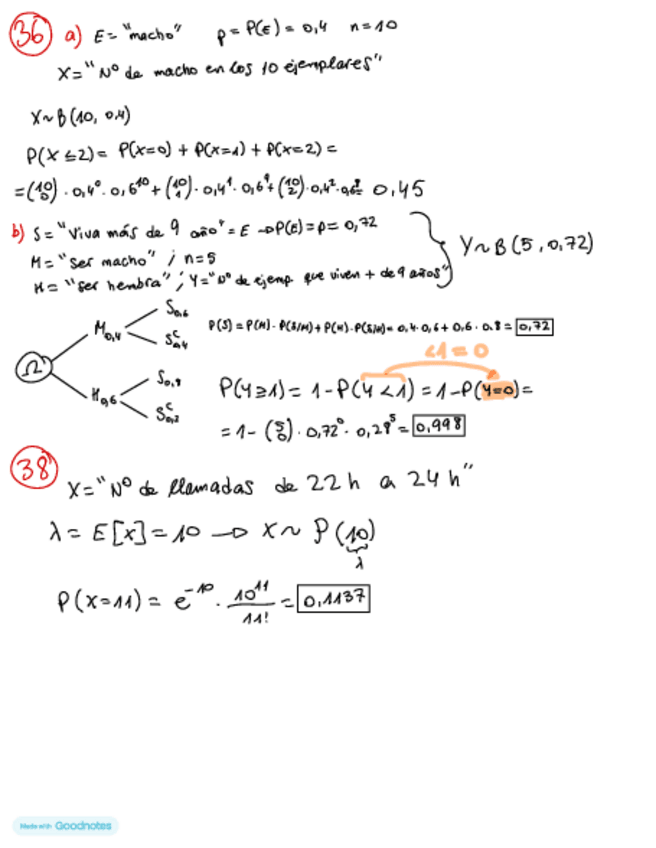 36 a) E = "macho" p = P(E) = 0,4 n = 10
X = "Nº de macho en los 10 ejemplares"
X ~ B(10, 0,4)
P(X ≤ 2) = P(X=0) + P(X=1) + P(X=2) =
= (10 0) · 0,4⁰ · 0,6¹⁰ + (10 1) · 0,4¹ · 0,6⁹ + (10 2) · 0,4² · 0,6⁸ = 0,45
b) S = "Viva más de 9 año" = E → P(E) = p = 0,72
M = "ser macho" ; n = 5
H = "ser hembra" ; Y = "Nº de ejemp que viven + de 9 años"
Y ~ B(5, 0,72)
Ω
M 0,4
S 0,6
Sᶜ 0,4
H 0,6
S 0,8
Sᶜ 0,2
P(S) = P(M) · P(S/M) + P(H) · P(S/H) = 0,4 · 0,6 + 0,6 · 0,8 = 0,72
<1 = 0
P(Y ≥ 1) = 1 - P(Y < 1) = 1 - P(Y=0) =
= 1 - (5 0) · 0,72⁰ · 0,28⁵ = 0,998
38 X = "Nº de llamadas de 22 h a 24 h"
λ = E[x] = 10 → X ~ P(10)
λ
P(X=11) = e⁻¹⁰ · 10¹¹/11! = 0,1137
Made with Goodnotes